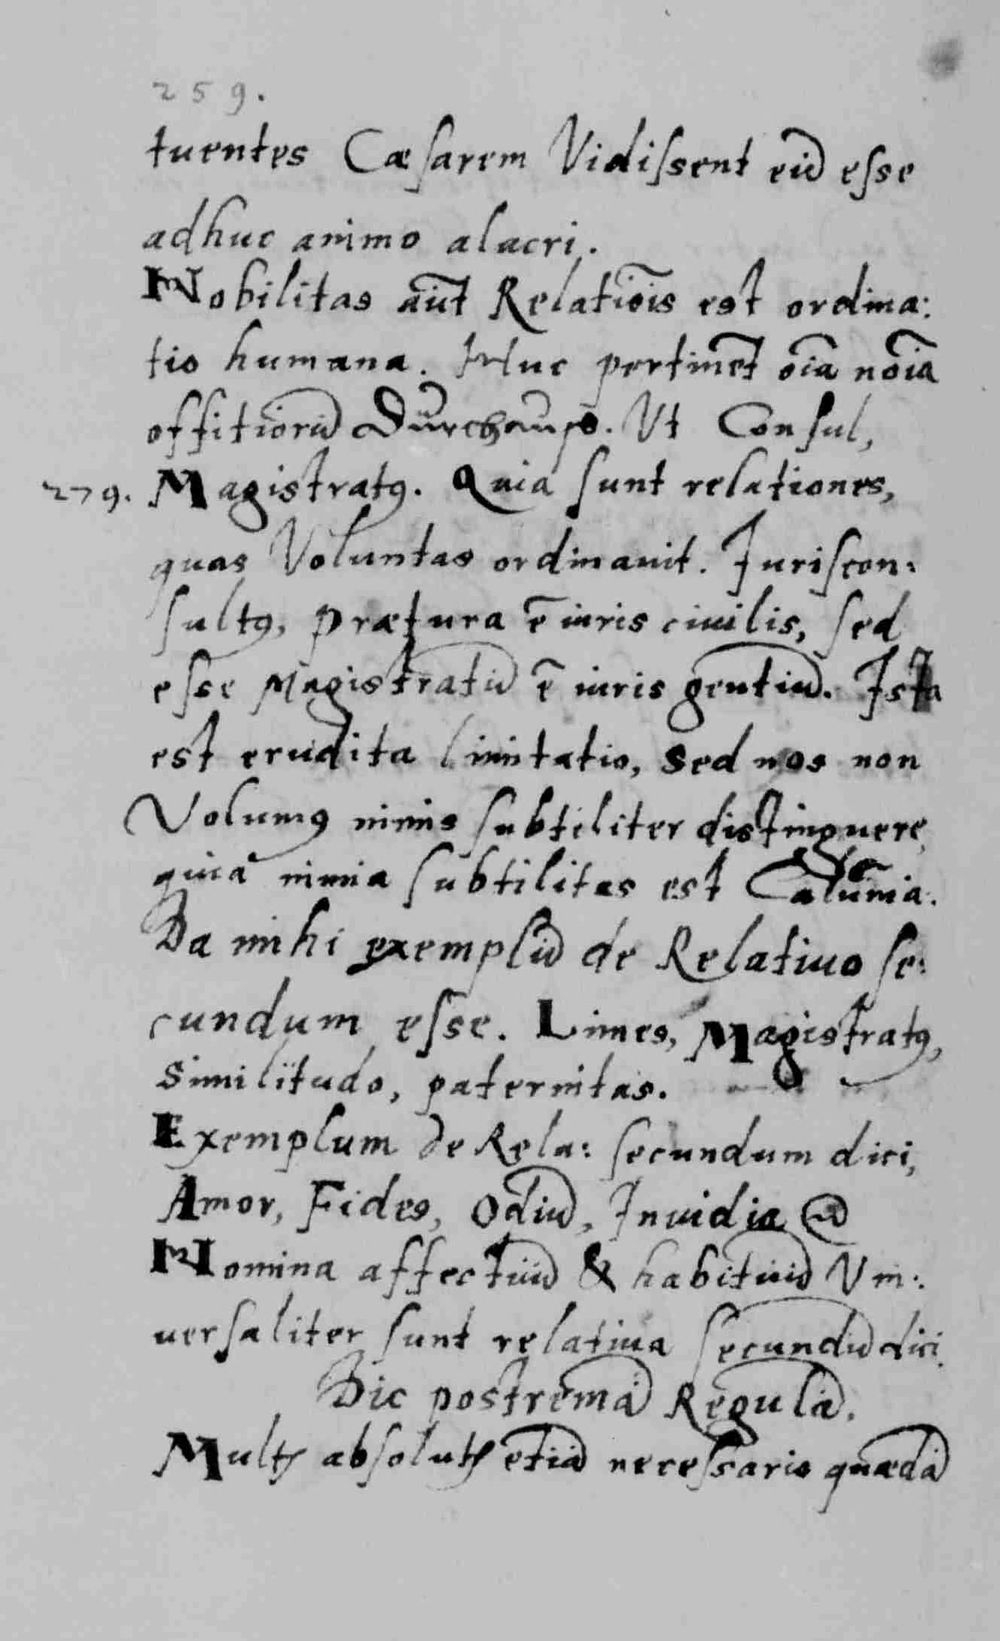 259.
tuentes Cæsarem Vidissent eū esse
adhuc animo alacri.
Nobilitas aūt Relatiōis est ordina:
tio humana. Huc pertinēt oīa nōīa
offitiorū Durchaus. Ut Consul,
279. Magistratꝰ. Quia sunt relationes,
quas Voluntas ordinauit. Juriscon:
sultꝰ, prætura ē iuris ciuilis, sed
esse Magistratū ē iuris gentiū. Ista
est erudita limitatio, sed nos non
Volumꝰ nimis subteliter distinguere,
quia nimia subtilitas est Calūnia.
Da mihi exemplū de Relatiuo se:
cundum esse. Limes, Magistratꝰ,
Similitudo, paternitas.
Exemplum de Rela: secundum dici,
Amor, Fides, Odiū, Inuidia
Nomina affectuū & habituū Vni:
uersaliter sunt relatiua secundū dici.
Dic postremā Regulā.
Mult absolut etiā necessario quædā